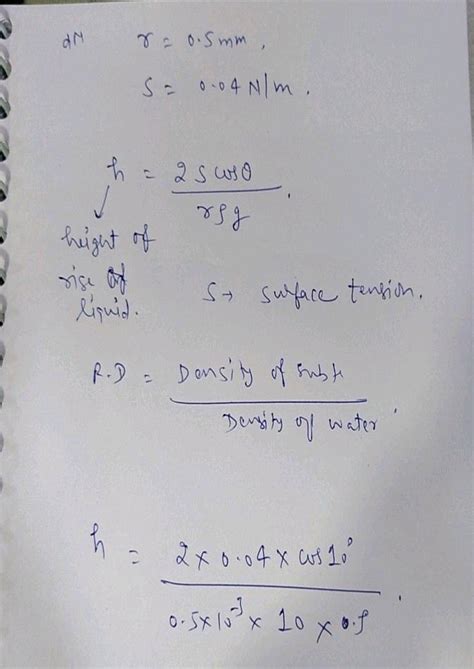 r = 0.5mm,
S = 0.04 N/m.
h = 2 S cosθ / rρg.
height of
rise of
liquid.
S → surface tension.
R.D = Density of / Density of water
h = 2 x 0.04 x cos10° / 0.5x10⁻³ x 10 x